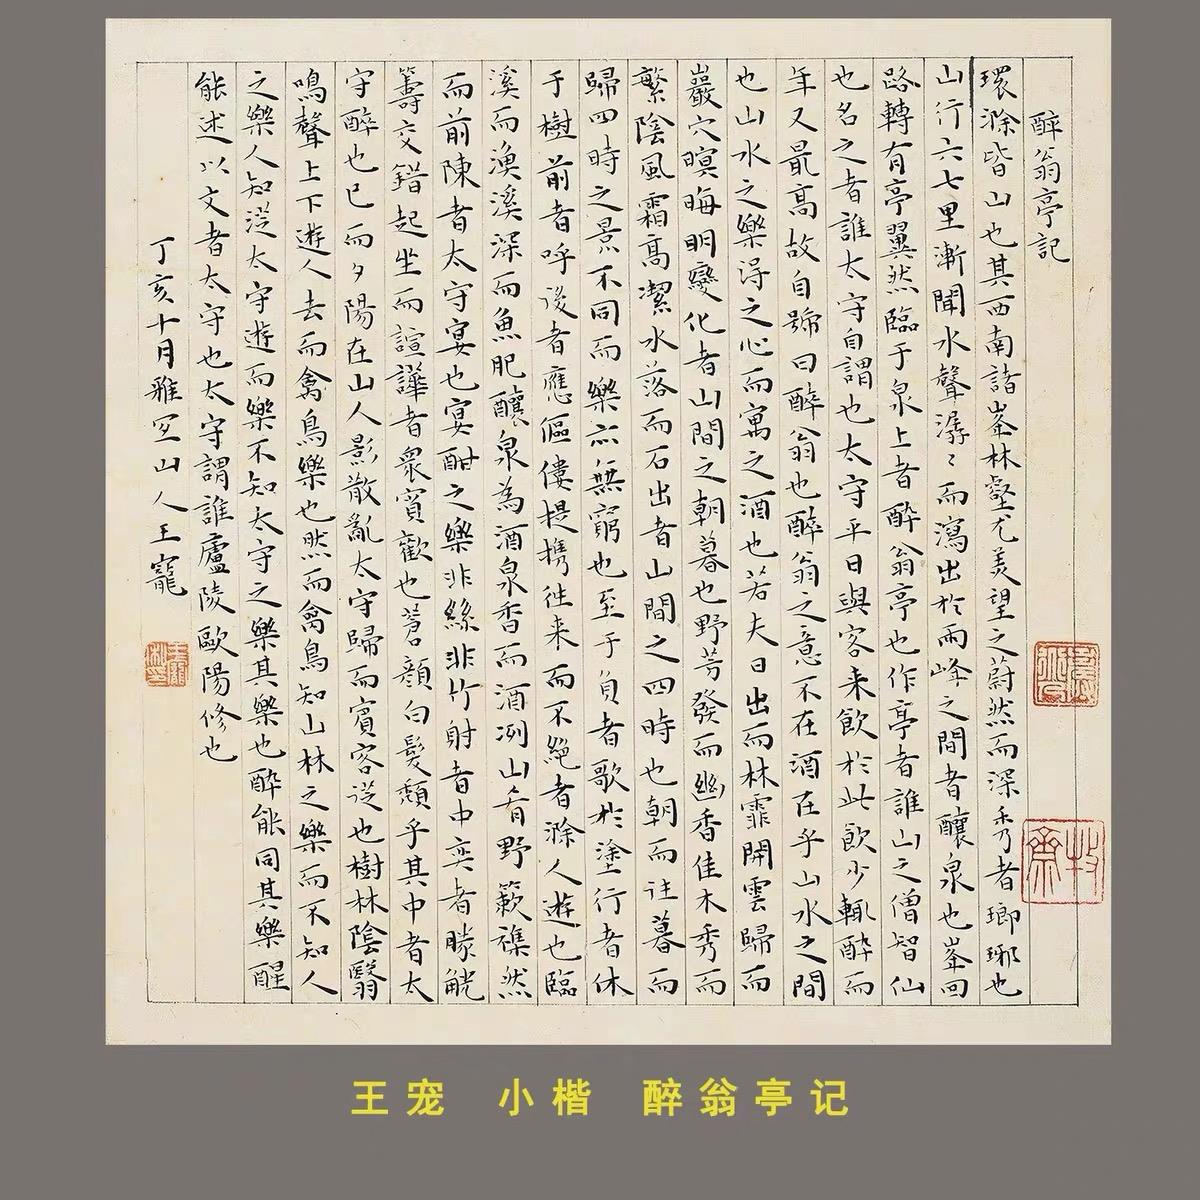 醉翁亭記
環滁皆山也其西南諸峯林壑尤美望之蔚然而深秀者瑯琊也
山行六七里漸聞水聲潺〻而瀉出於兩峰之間者釀泉也峯回
路轉有亭翼然臨于泉上者醉翁亭也作亭者誰山之僧智仙
也名之者誰太守自謂也太守平日與客来飲於此飲少輒醉而
年又最高故自號曰醉翁也醉翁之意不在酒在乎山水之間
也山水之樂得之心而寓之酒也若夫日出而林霏開雲歸而
巖穴暝晦明變化者山間之朝暮也野芳發而幽香佳木秀而
繁陰風霜高潔水落而石出者山間之四時也朝而往暮而
歸四時之景不同而樂亦無窮也至于負者歌於塗行者休
于樹前者呼後者應傴僂提攜往来而不絕者滁人遊也臨
溪而漁溪深而魚肥釀泉為酒泉香而酒冽山肴野蔌襍然
而前陳者太守宴也宴酣之樂非絲非竹射者中奕者勝觥
籌交錯起坐而諠譁者衆賓歡也蒼顏白髮頹乎其中者太
守醉也已而夕陽在山人影散亂太守歸而賓客從也樹林陰翳
鳴聲上下遊人去而禽鳥樂也然而禽鳥知山林之樂而不知人
之樂人知從太守遊而樂不知太守之樂其樂也醉能同其樂醒
能述以文者太守也太守謂誰廬陵歐陽修也
丁亥十月雅宜山人王寵
牧齋
王宠 小楷 醉翁亭记